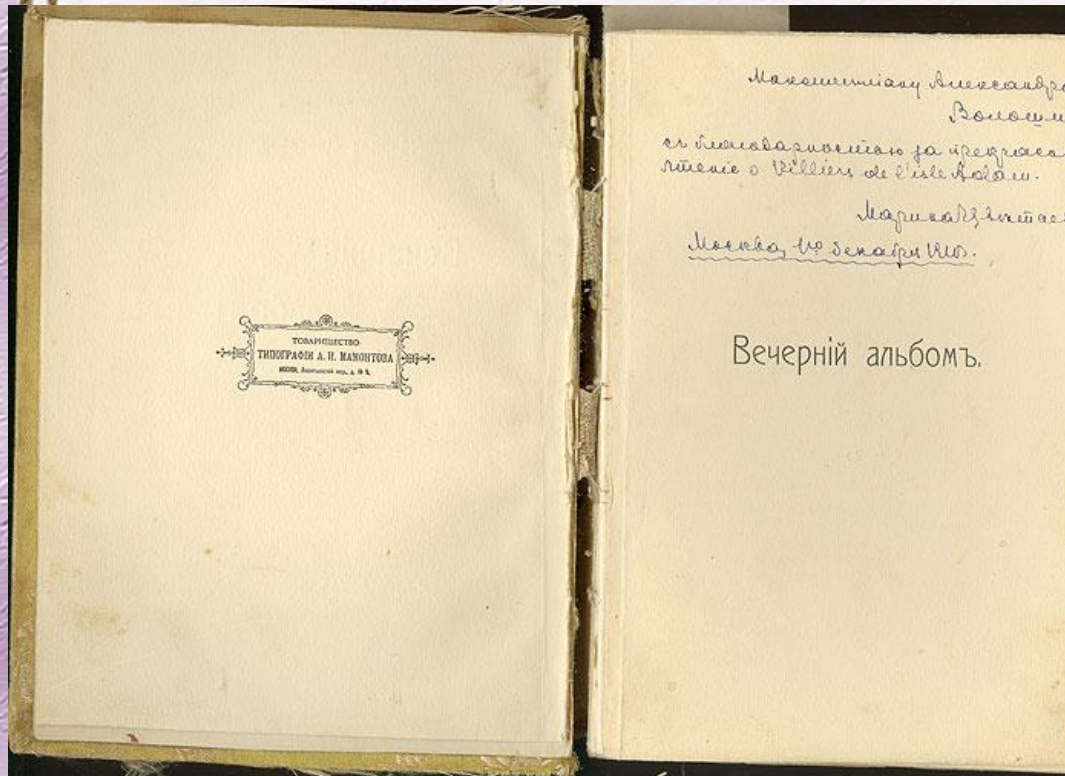 ТОВАРИЩЕСТВО
ТИПОГРАФІИ А. И. МАМОНТОВА
МОСКВА,
Максимиліану Александро
Волоши
съ благодарностью за прекрасн
чтеніе о Villiers de l'isle Adam.
Марина Цвѣтаев
Москва, 1го декабря 1910г.
Вечерній альбомъ.